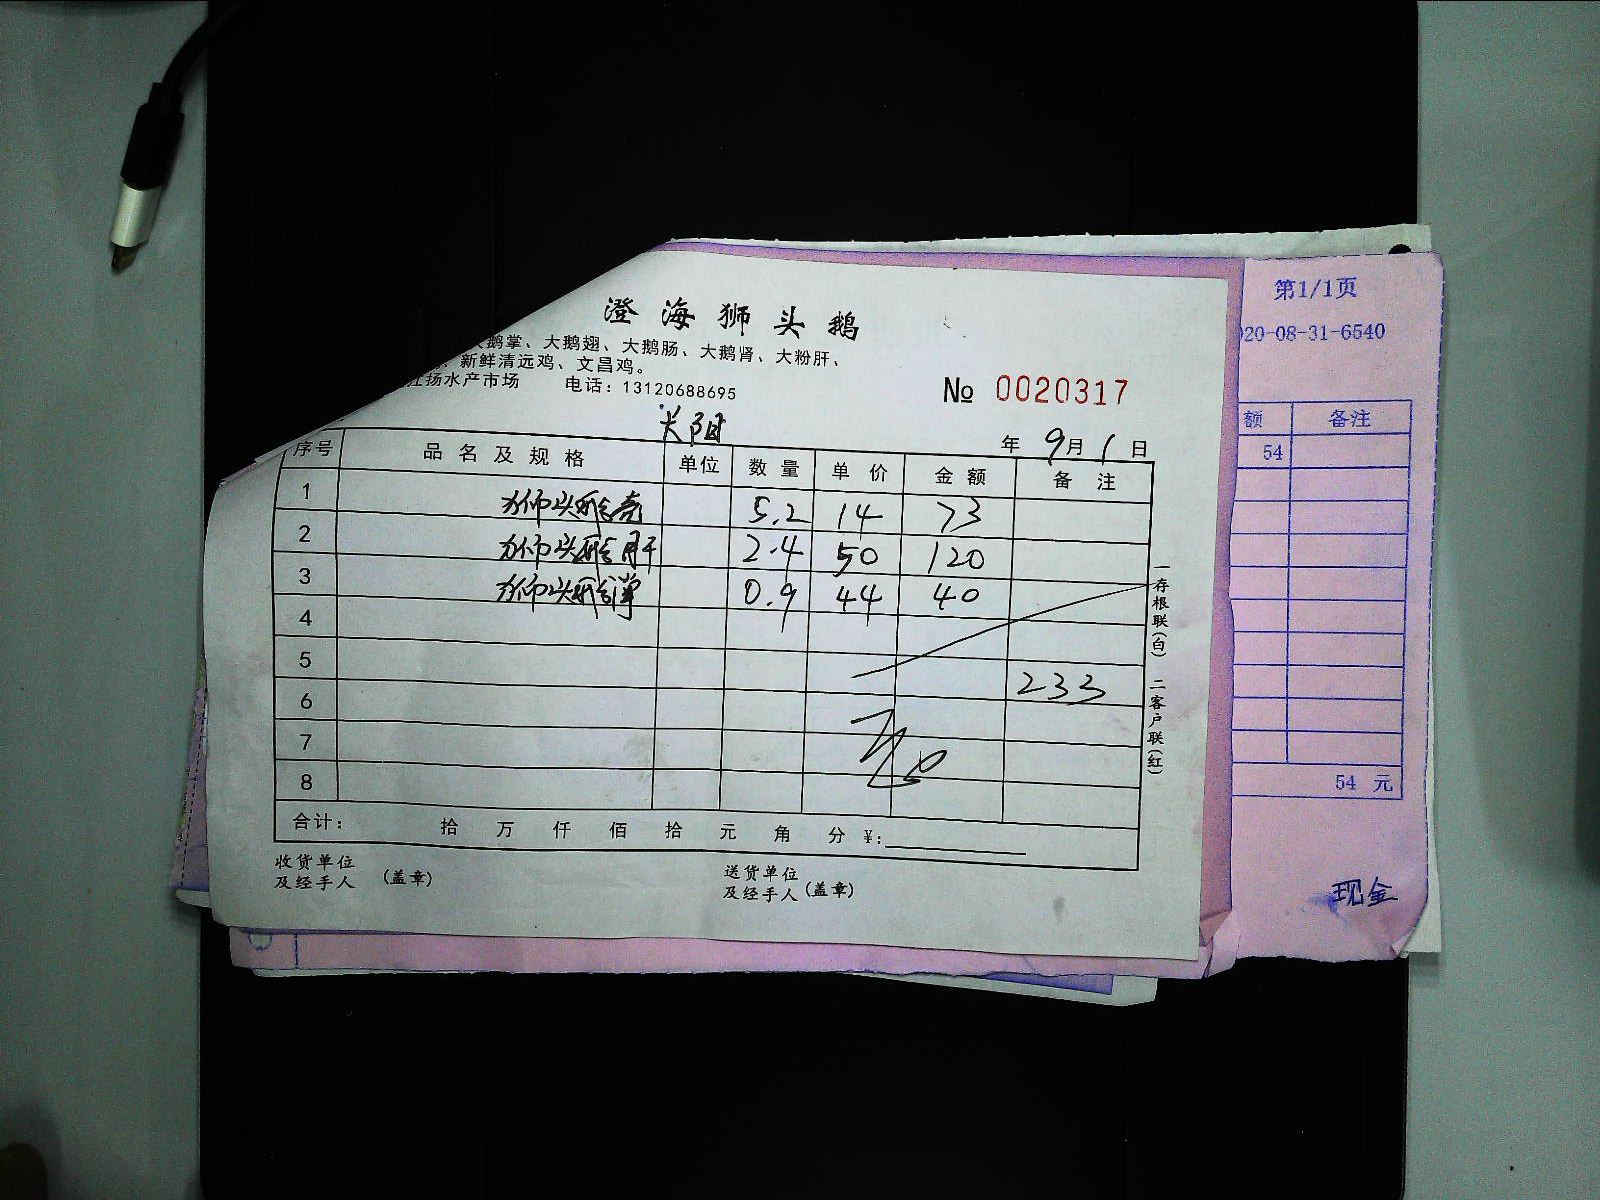 澄海狮头鹅
大鹅掌、大鹅翅、大鹅肠、大鹅肾、大粉肝、
新鲜清远鸡、文昌鸡。
江扬水产市场 电话：13120688695
№ 0020317
长阳
年 9月 1日
序号 品名及规格 单位 数量 单价 金额 备注
1 狮头鹅壳 5.2 14 73
2 狮头鹅肝 2.4 50 120
3 狮头鹅掌 0.9 44 40
4
5
233
6
7
8
合计： 拾 万 仟 佰 拾 元 角 分 ¥:
收货单位
及经手人 (盖章)
送货单位
及经手人 (盖章)
一存根联(白) 二客户联(红)
第1/1页
020-08-31-6540
额 备注
54
54 元
现金